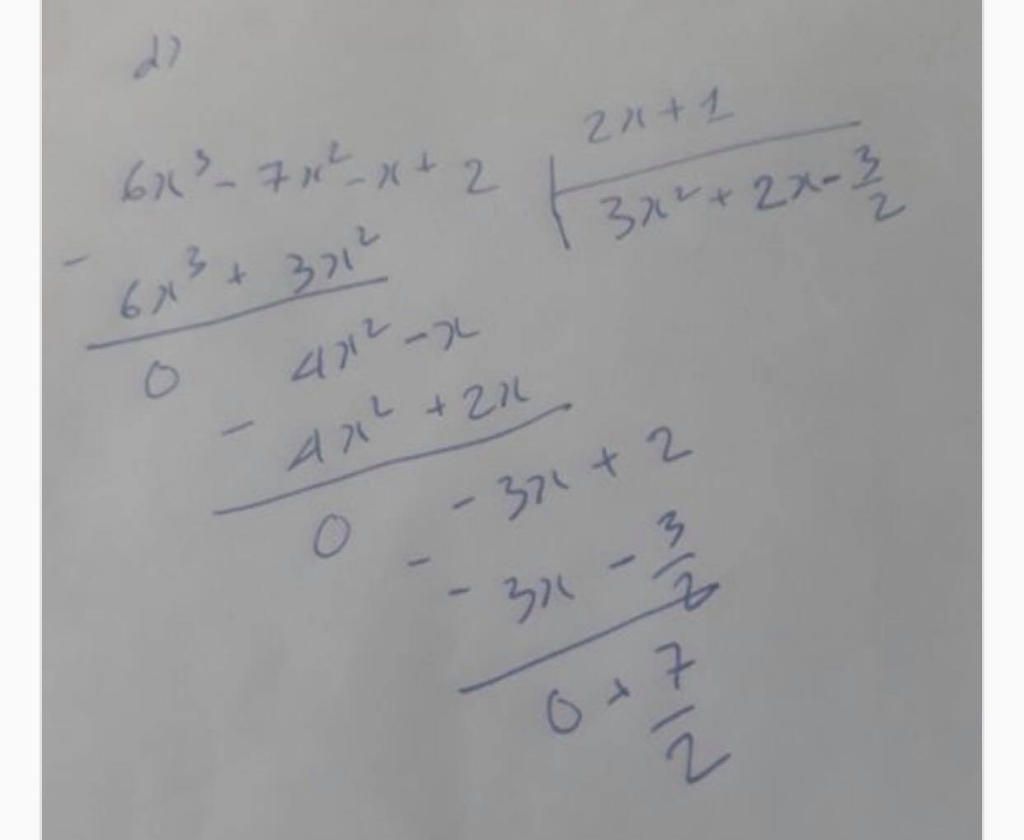 d)
2x + 1
6x³ - 7x² - x + 2
3x² + 2x - 3/2
-
6x³ + 3x²
0 4x² - x
-
4x² + 2x
0 - 3x + 2
-
- 3x - 3/2
0 + 7/2